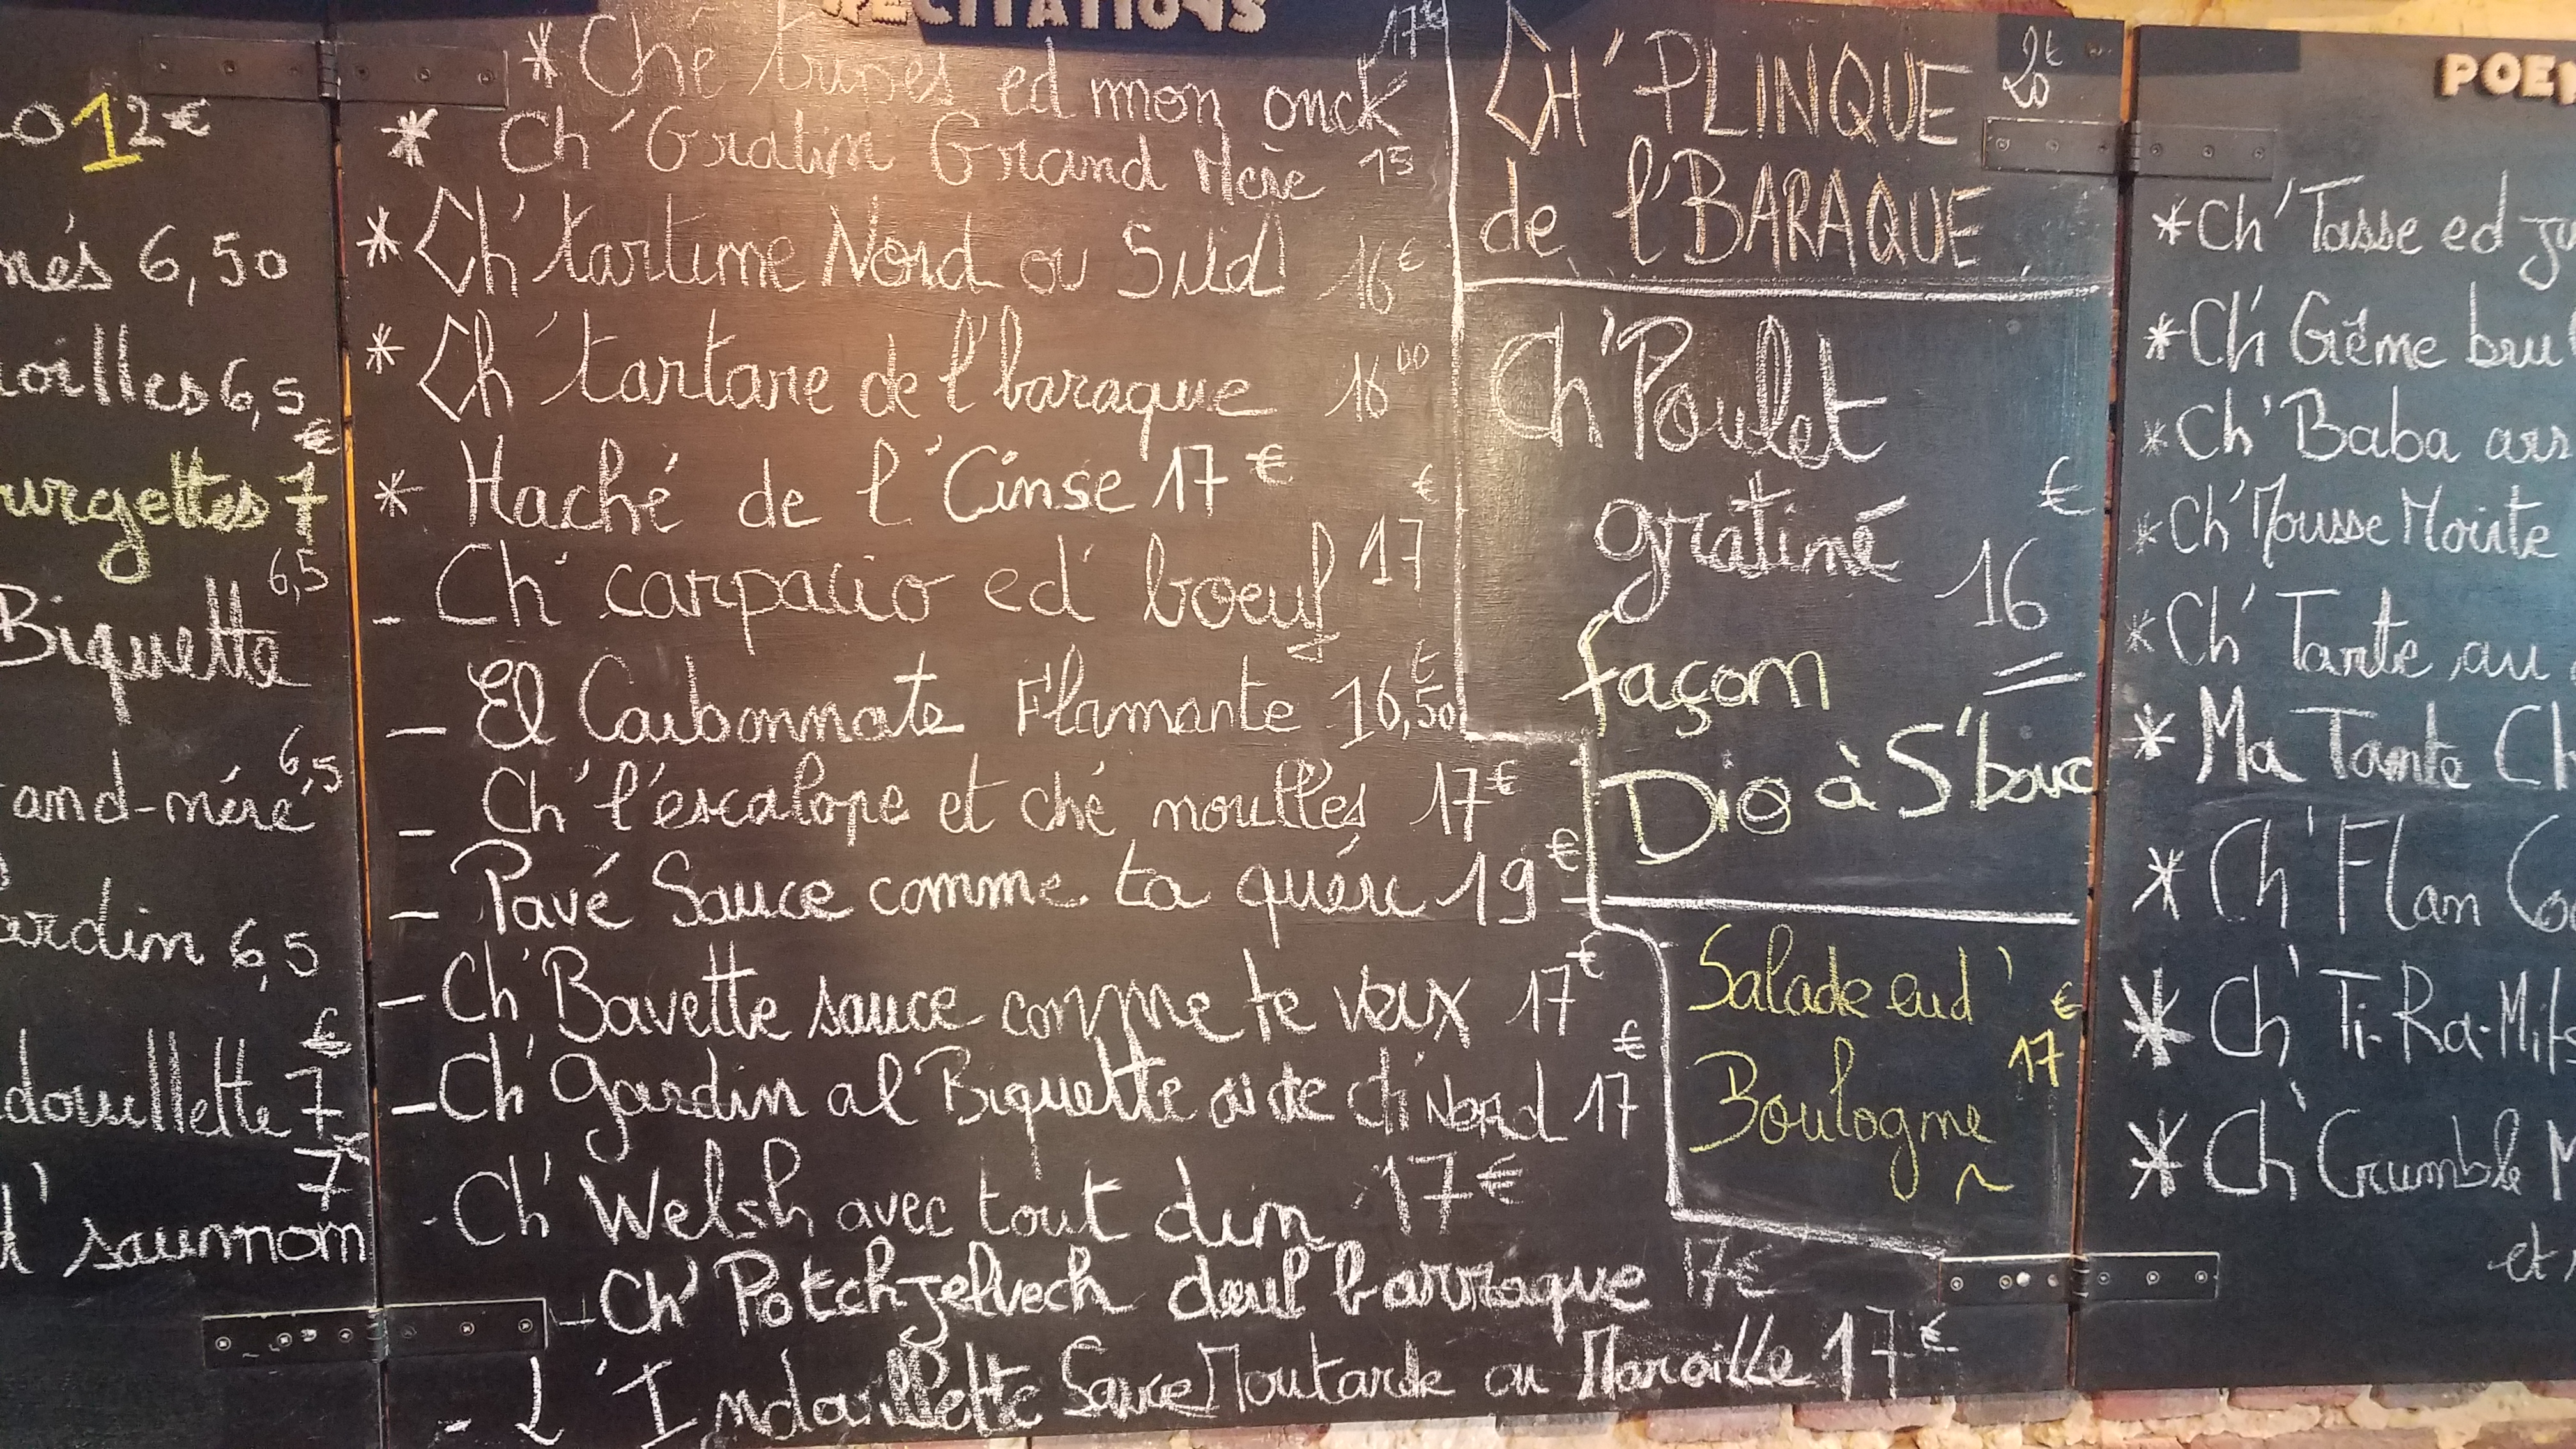 012€
nés 6,50
oilles 6,5
€
urgettes 7
6,5
Biquette
6,5
and-mére
ardin 6,5
€
douillette 7
7
saumon
RECITATIONS
* Ché tripes ed mon onck 17€
* Ch' Gratin Grand Mère 15
* Ch' tartine Nord ou Sud 16€
* Ch' tartare de l'baraque
* Haché de l'Cinse 17€
- Ch' carpacio ed' boeuf 17€
- El Carbonnate Flamante 16,50€
- Ch' l'escalope et ché moulles 17€
- Pavé Sauce comme ta quére 19€
- Ch' Bavette sauce comme te veux 17€
- Ch' Gardin al Biquette ou de ch' Nord 17€
- Ch' Welsh avec tout dim 17€
- Ch' Potchjelvech deul barraque 17€
- L'Indouillette Sauce Moutarde ou Maroille 17€
CH' PLINQUE 20€
de l'BARAQUE
Ch' Poulet
gratiné 16€
façon
Dio à S'barc
Salade eud'
Boulogne 17€
POE
* Ch' Tasse ed
* Ch' Crème bru
* Ch' Baba arr
* Ch' Mousse Moirte
* Ch' Tarte au
* Ma Tante Ch
* Ch' Flan Co
* Ch' Ti-Ra-Mi
* Ch' Crumble M
et